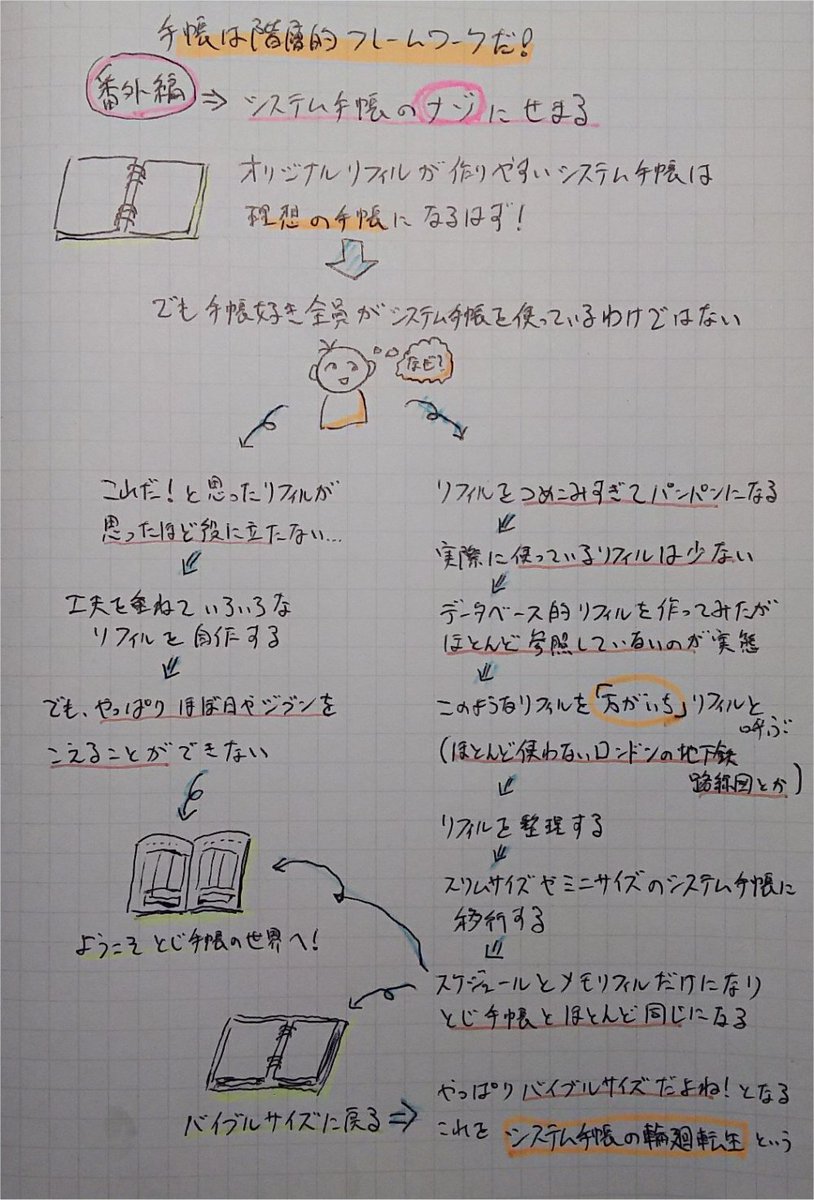 手帳は階層的フレームワークだ!
番外編 ⇒ システム手帳のナゾにせまる
オリジナルリフィルが作りやすいシステム手帳は
理想の手帳になるはず!
でも手帳好き全員がシステム手帳を使っているわけではない
なぜ?
これだ!と思ったリフィルが
思ったほど役に立たない…
工夫を重ねていろいろな
リフィルを自作する
でも、やっぱりほぼ日やジブンを
こえることができない
ようこそとじ手帳の世界へ!
リフィルをつめこみすぎてパンパンになる
実際に使っているリフィルは少ない
データベース的リフィルを作ってみたが
ほとんど参照していないのが実態
このようなリフィルを「万がいち」リフィルと
呼ぶ
(ほとんど使わないロンドンの地下鉄
路線図とか)
リフィルを整理する
スリムサイズやミニサイズのシステム手帳に
移行する
スケジュールとメモリフィルだけになり
とじ手帳とほとんど同じになる
バイブルサイズに戻る ⇒
やっぱりバイブルサイズだよね!となる
これをシステム手帳の輪廻転生という